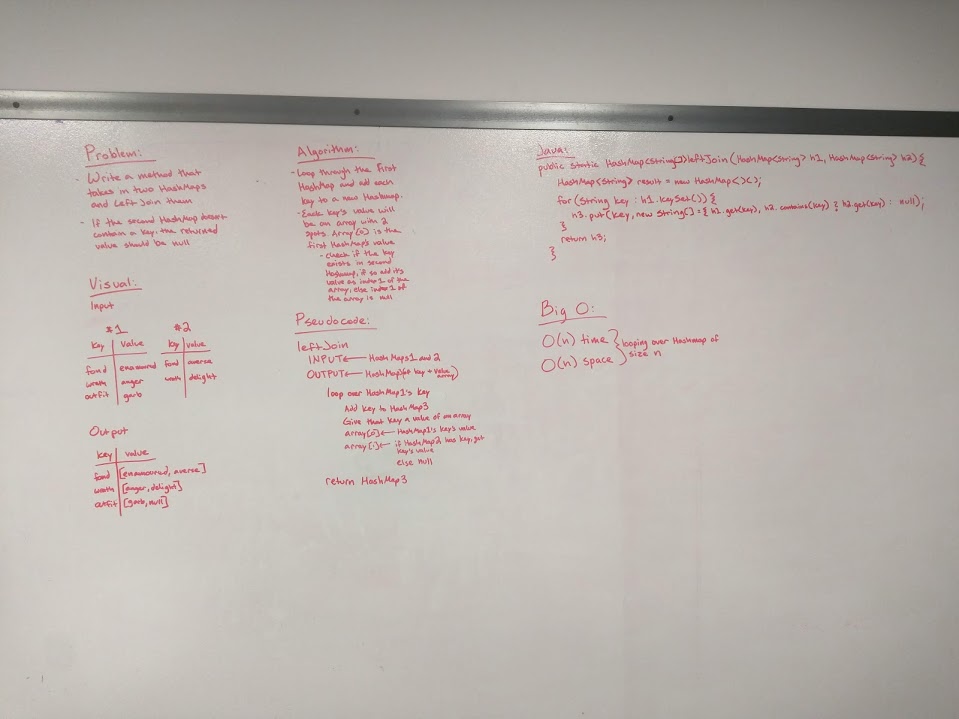 Problem:
- Write a method that
takes in two HashMaps
and Left Join them
- If the second HashMap doesnt
contain a key, the returned
value should be null
Visual:
Input
#1
Key | Value
fond | enamoured
wrath | anger
outfit | garb
#2
Key | value
fond | averse
wrath | delight
Output
Key | value
fond | [enamoured, averse]
wrath | [anger, delight]
outfit | [garb, null]
Algorithm:
- Loop through the First
HashMap and add each
key to a new Hashmap.
- Each key's value will
be an array with 2
spots. Array(0) is the
first HashMap's value
- check if the key
exists in second
Hashmap, if so add it's
value as index 1 of the
array, else index 1 of
the array is null
Pseudocode:
leftJoin
INPUT ← Hash Maps 1 and 2
OUTPUT ← HashMap3 (of key + value array)
loop over HashMap1's key
Add key to HashMap3
Give that key a value of an array
array[0] ← HashMap1's key's value
array[1] ← if HashMap2 has key, get
key's value
else null
return HashMap3
Java:
public static HashMap<String[]> leftJoin (HashMap<String> h1, HashMap<String> h2) {
HashMap<String> result = new HashMap<>();
for (String key : h1.keySet()) {
h3.put(key, new String[] = { h1.get(key), h2.contains(key) ? h2.get(key) : null);
}
return h3;
}
Big O:
O(n) time
O(n) space
} looping over Hashmap of
size n